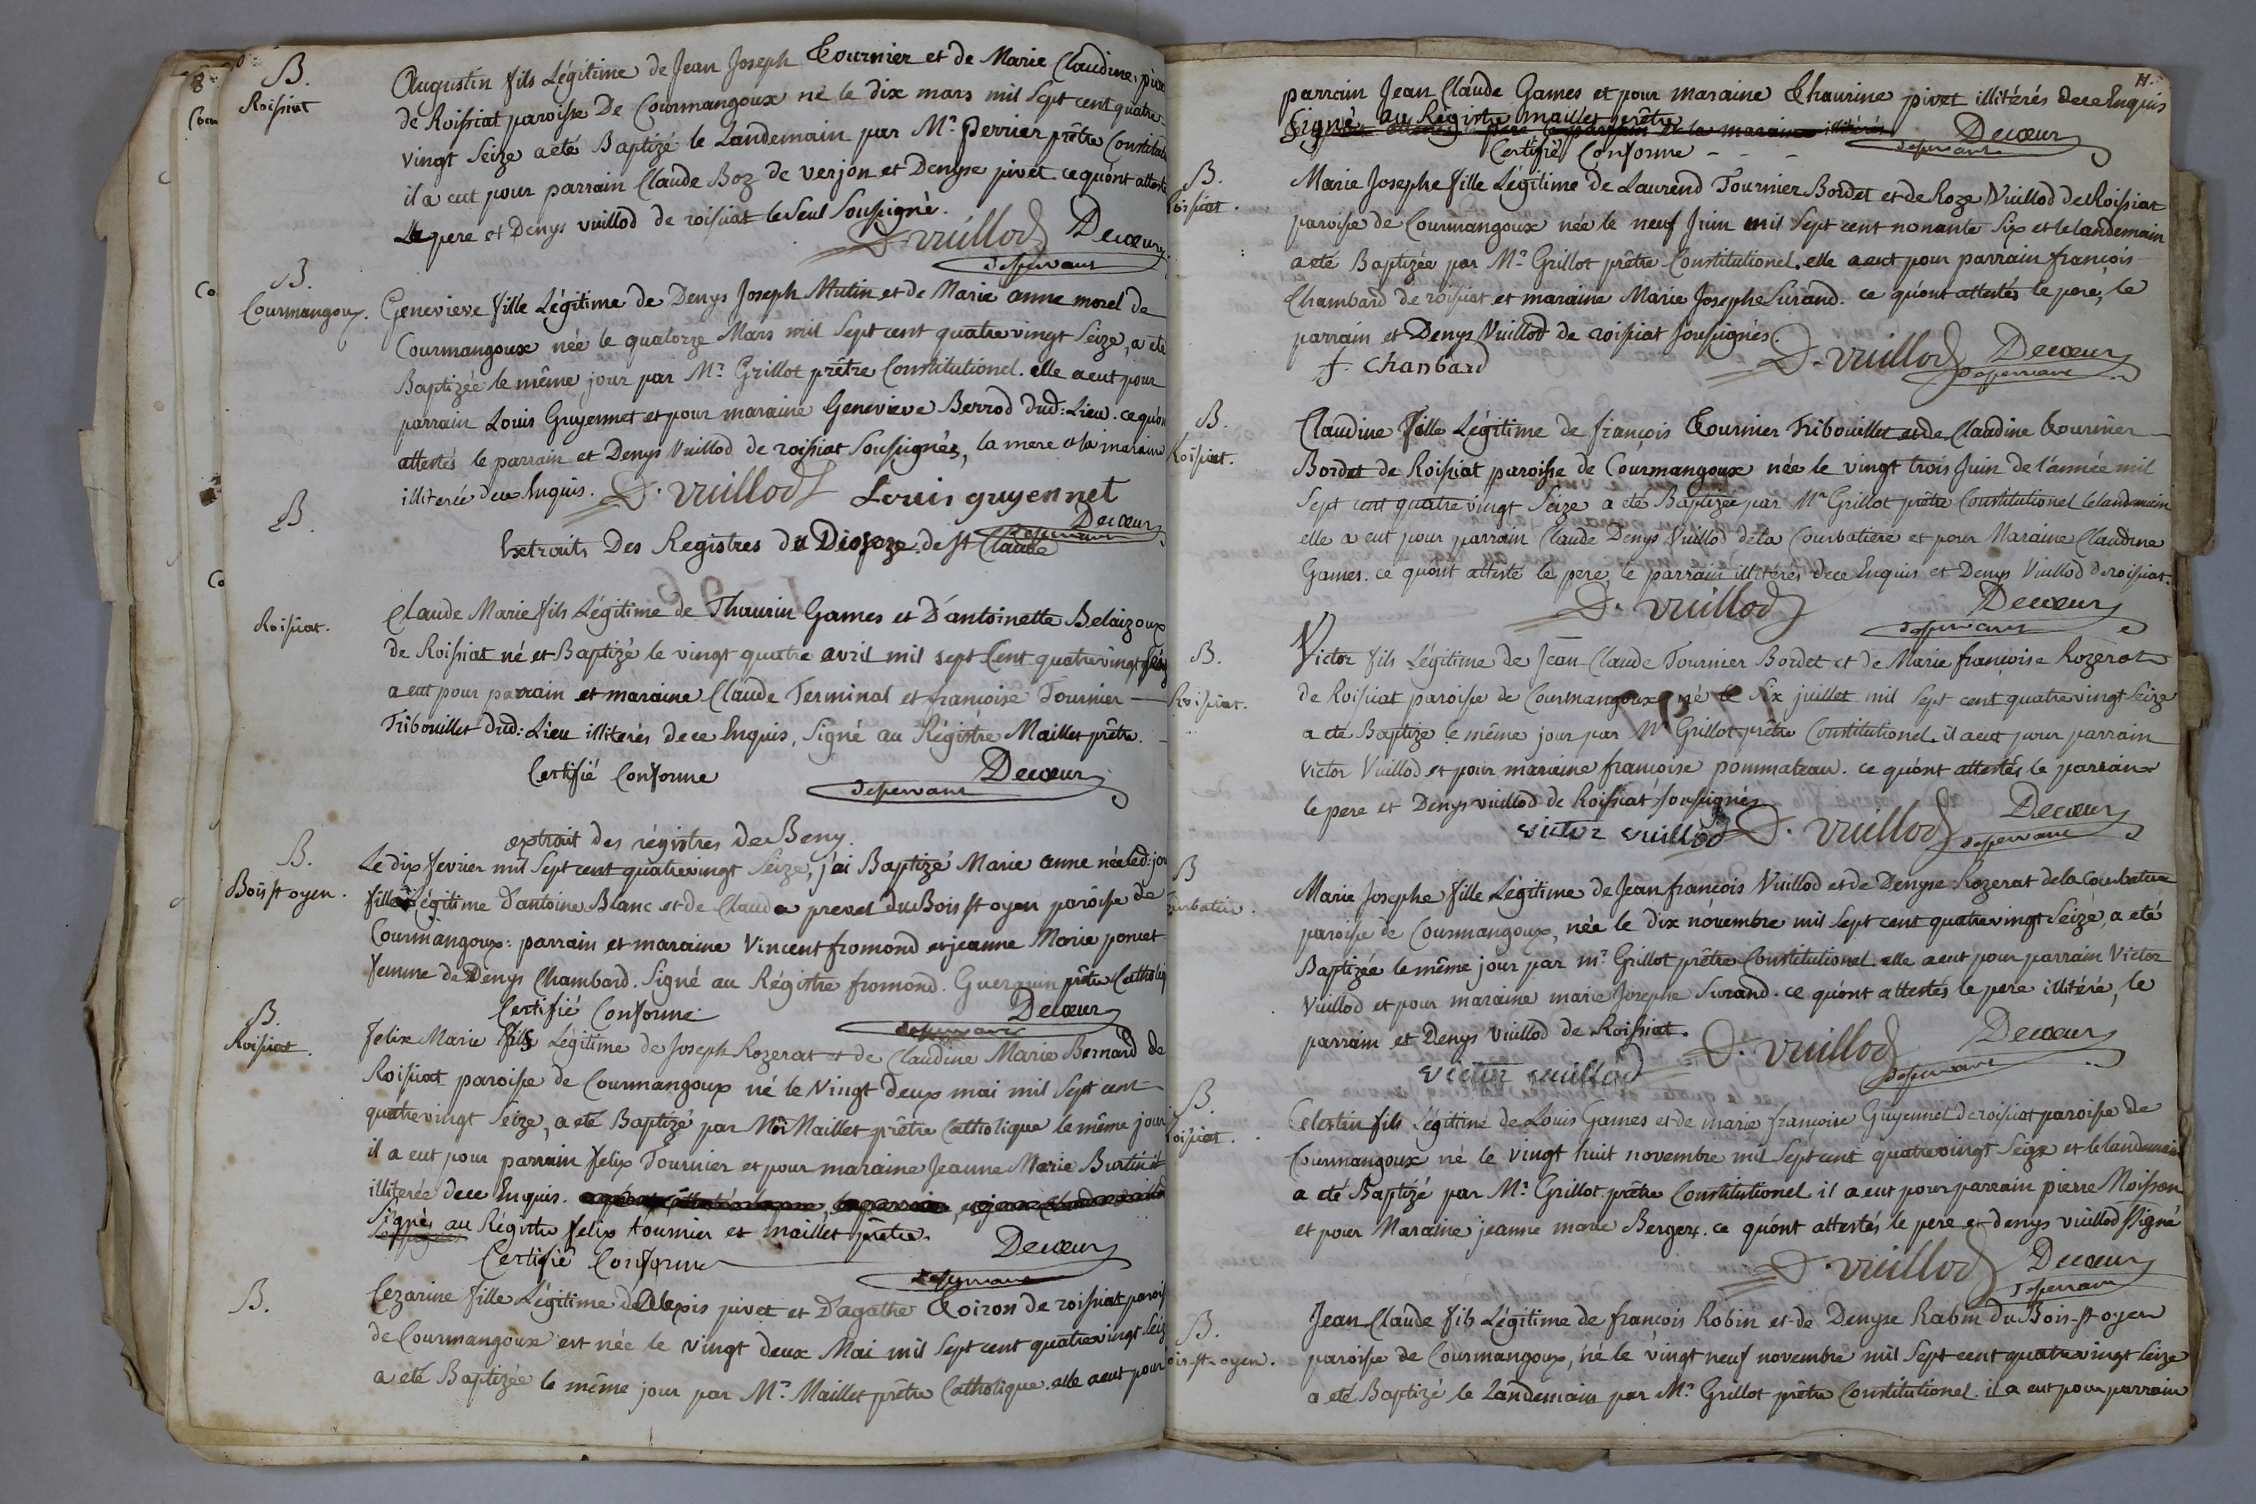 B.
Roissiat
Augustin fils Légitime de Jean Joseph Tournier et de Marie Claudine pivet
de Roissiat paroisse De Courmangoux né le dix mars mil sept cent quatre
vingt Seize a eté Baptizé le Landemain par Mr. Perrier prêtre Constitut
il a eut pour parrain Claude Boz de verjon et Denyse pivet. ce qu'ont attesté
Le pere et Denys vuillod de roissiat le Seul Soussigné.
D. vuillod Decœur
desservant
B.
Courmangoux.
Genevieve fille Légitime de Denys Joseph Mutin et de Marie anne morel de
Courmangoux née le quatorze Mars mil Sept cent quatre vingt Seize, a eté
Baptizée le même jour par Mr. Grillot prêtre Constitutionel. elle a eut pour
parrain Louis Guyennet et pour maraine Genevieve Berrod dud: Lieu. ce qu'on
attestés le parrain et Denys Vuillod de roissiat Soussignés, la mere et la maraine
illiterée de ce Enquis. D. vuillod Louis guyennet
Decœur
desservant
B.
Extraits Des Registres du Diozoze de st Claude
Roissiat.
Claude Marie fils Légitime de Thaurin Games et D'antoinette Belaizoux
de Roissiat né et Baptizé le vingt quatre avril mil sept Cent quatre vingt
a eut pour parrain et maraine Claude Terminal et françoise Tournier
Tribouillet dud: Lieu illiterés de ce Enquis, Signé au Régistre Maillet prêtre.
Certifié Conforme Decœur
desservant
extrait des régistres de Beny.
B.
Bois st oyen.
Le dix fevrier mil Sept cent quatre vingt Seize, j'ai Baptizé Marie anne née led: jour
fille Légitime d'antoine Blanc et de Claude prevet du Bois st oyen paroisse de
Courmangoux: parrain et maraine Vincent fromond et jeanne Marie poncet
femme de Denys Chambard. Signé au Régistre fromond. Guerquin prêtre Catholiq
Certifié Conforme Decœur
desservant
B.
Roissiat.
felix Marie fils Légitime de Joseph Rozerat et de Claudine Marie Bernard de
Roissiat paroisse de Courmangoux né le Vingt deux mai mil Sept cent
quatre vingt Seize, a eté Baptizé par Mr Maillet prêtre Catholique le même jour
il a eut pour parrain felix Tournier et pour maraine Jeanne Marie Burtin
illiterée de ce Enquis.
Signés au Régistre felix tournier et maillet prêtre.
Certifié Conforme Decœur
desservant
B.
Cezarine fille Légitime de Alexis pivet et D'agathe Coiron de roissiat parois
de Courmangoux est née le vingt deux Mai mil Sept cent quatre vingt Seiz
a eté Baptizée le même jour par Mr. Maillet prêtre Catholique. elle a eut pour
parrain Jean Claude Games et pour maraine Thaurine pivet illitérés de ce Enquis
Signé au Régistre maillet prêtre
Certifié Conforme - - - Decœur
desservant
B.
Roissiat.
Marie Josephe fille Légitime de Laurend Tournier Bordet et de Roze Vuillod de Roissiat
paroisse de Courmangoux née le neuf Juin mil Sept cent nonante Six et le landemain
a eté Baptizée par Mr. Grillot prêtre Constitutionel. elle a eut pour parrain françois
Chambard de roissiat et maraine Marie Josephe Surand. ce qu'ont attestés le pere, le
parrain et Denys Vuillod de roissiat Soussignés.
f. chanbard D. vuillod Decœur
desservant
B.
Roissiat.
Claudine fille Légitime de françois Tournier Tribouillet et de Claudine tournier
Bordet de Roissiat paroisse de Courmangoux née le vingt trois Juin de l'année mil
Sept cent quatre vingt Seize a eté Baptizée par Mr Grillot prêtre Constitutionel le landemain
elle a eut pour parrain Claude Denys Vuillod de la Courbatiere et pour Maraine Claudine
Games. ce qu'ont attesté le pere, le parrain illiterés de ce Enquis et Denys Vuillod de roissiat.
D. vuillod Decœur
desservant
B.
Roissiat.
Victor fils Légitime de Jean Claude Tournier Bordet et de Marie françoise Rozerat
de Roissiat paroisse de Courmangoux né le Six juillet mil Sept cent quatre vingt Seize
a eté Baptizé le même jour par Mr Grillot prêtre Constitutionel. il a eut pour parrain
victor Vuillod et pour maraine françoise pommateau. ce qu'ont attestés le parrain
le pere et Denys vuillod de Roissiat soussignés
victor vuillod D. vuillod Decœur
desservant
B
Marie Josephe fille Légitime de Jean françois Vuillod et de Denyse Rozerat de la Courbatiere
paroisse de Courmangoux, née le dix novembre mil Sept cent quatre vingt Seize, a eté
Baptizée le même jour par mr. Grillot prêtre Constitutionel. elle a eut pour parrain Victor
Vuillod et pour maraine marie Josephe Surand. ce qu'ont attestés le pere illitéré, le
parrain et Denys Vuillod de Roissiat.
victor vuillod D. vuillod Decœur
desservant
B.
Roissiat.
Celestin fils Légitime de Louis Games et de marie françoise Guyennet de roissiat paroisse de
Courmangoux né le vingt huit novembre mil Sept cent quatre vingt Seize et le landemain
a eté Baptizé par Mr. Grillot prêtre Constitutionel il a eut pour parrain pierre Moisson
et pour Maraine jeanne marie Berger. ce qu'ont attestés le pere et denys vuillod ssigné
D. vuillod Decœur
desservant
B.
ois-st-oyen.
Jean Claude fils Légitime de françois Robin et de Denyse Rabin du Bois-st-oyen
paroisse de Courmangoux, né le vingt neuf novembre mil Sept cent quatre vingt Seize
a eté Baptizé le Landemain par Mr. Grillot prêtre Constitutionel. il a eut pour parrain